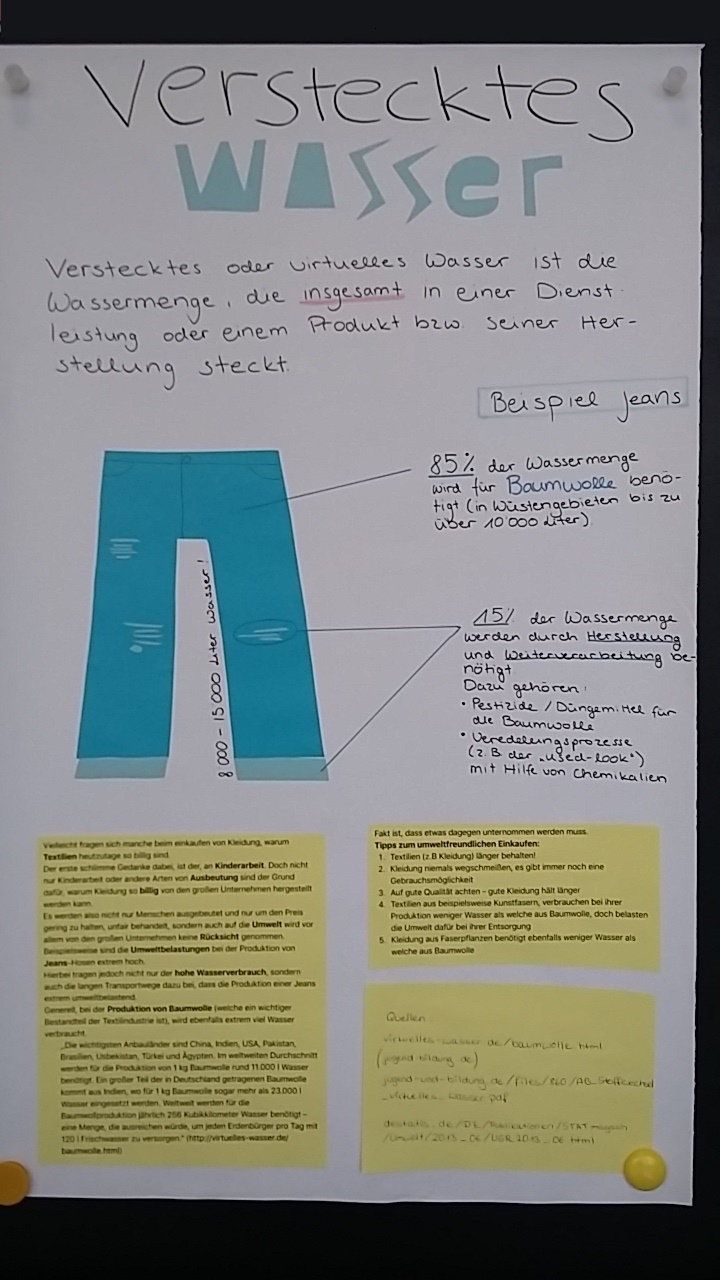 Verstecktes
Wasser
Verstecktes oder virtuelles Wasser ist die
Wassermenge, die insgesamt in einer Dienst-
leistung oder einem Produkt bzw. seiner Her-
stellung steckt.
Beispiel Jeans
85% der Wassermenge
wird für Baumwolle benö-
tigt (in Wüstengebieten bis zu
über 10 000 Liter)
8 000 – 15 000 Liter Wasser!
15% der Wassermenge
werden durch Herstellung
und Weiterverarbeitung be-
nötigt
Dazu gehören:
• Pestizide / Düngemittel für
die Baumwolle
• Veredelungsprozesse
(z.B. der „used-look")
mit Hilfe von Chemikalien
Vielleicht fragen sich manche beim einkaufen von Kleidung, warum
Textilien heutzutage so billig sind.
Der erste schlimme Gedanke dabei, ist der, an Kinderarbeit. Doch nicht
nur Kinderarbeit oder andere Arten von Ausbeutung sind der Grund
dafür, warum Kleidung so billig von den großen Unternehmen hergestellt
werden kann.
Es werden also nicht nur Menschen ausgebeutet und nur um den Preis
gering zu halten, unfair behandelt, sondern auch auf die Umwelt wird vor
allem von den großen Unternehmen keine Rücksicht genommen.
Beispielsweise sind die Umweltbelastungen bei der Produktion von
Jeans-Hosen extrem hoch.
Hierbei tragen jedoch nicht nur der hohe Wasserverbrauch, sondern
auch die langen Transportwege dazu bei, dass die Produktion einer Jeans
extrem umweltbelastend.
Generell, bei der Produktion von Baumwolle (welche ein wichtiger
Bestandteil der Textilindustrie ist), wird ebenfalls extrem viel Wasser
verbraucht.
„Die wichtigsten Anbauländer sind China, Indien, USA, Pakistan,
Brasilien, Usbekistan, Türkei und Ägypten. Im weltweiten Durchschnitt
werden für die Produktion von 1 kg Baumwolle rund 11.000 l Wasser
benötigt. Ein großer Teil der in Deutschland getragenen Baumwolle
kommt aus Indien, wo für 1 kg Baumwolle sogar mehr als 23.000 l
Wasser eingesetzt werden. Weltweit werden für die
Baumwollproduktion jährlich 256 Kubikkilometer Wasser benötigt –
eine Menge, die ausreichen würde, um jeden Erdenbürger pro Tag mit
120 l Frischwasser zu versorgen." (http://virtuelles-wasser.de/
baumwolle.html)
Fakt ist, dass etwas dagegen unternommen werden muss.
Tipps zum umweltfreundlichen Einkaufen:
1. Textilien (z.B Kleidung) länger behalten!
2. Kleidung niemals wegschmeißen, es gibt immer noch eine
Gebrauchsmöglichkeit
3. Auf gute Qualität achten – gute Kleidung hält länger
4. Textilien aus beispielsweise Kunstfasern, verbrauchen bei ihrer
Produktion weniger Wasser als welche aus Baumwolle, doch belasten
die Umwelt dafür bei ihrer Entsorgung
5. Kleidung aus Faserpflanzen benötigt ebenfalls weniger Wasser als
welche aus Baumwolle
Quellen:
virtuelles-wasser.de/baumwolle.html
(jugend-bildung.de)
jugend-und-bildung.de/files/
_virtuelles_Wasser.pdf
destatis.de/DE/Publikationen/STATmagazin
/Umwelt/2013_